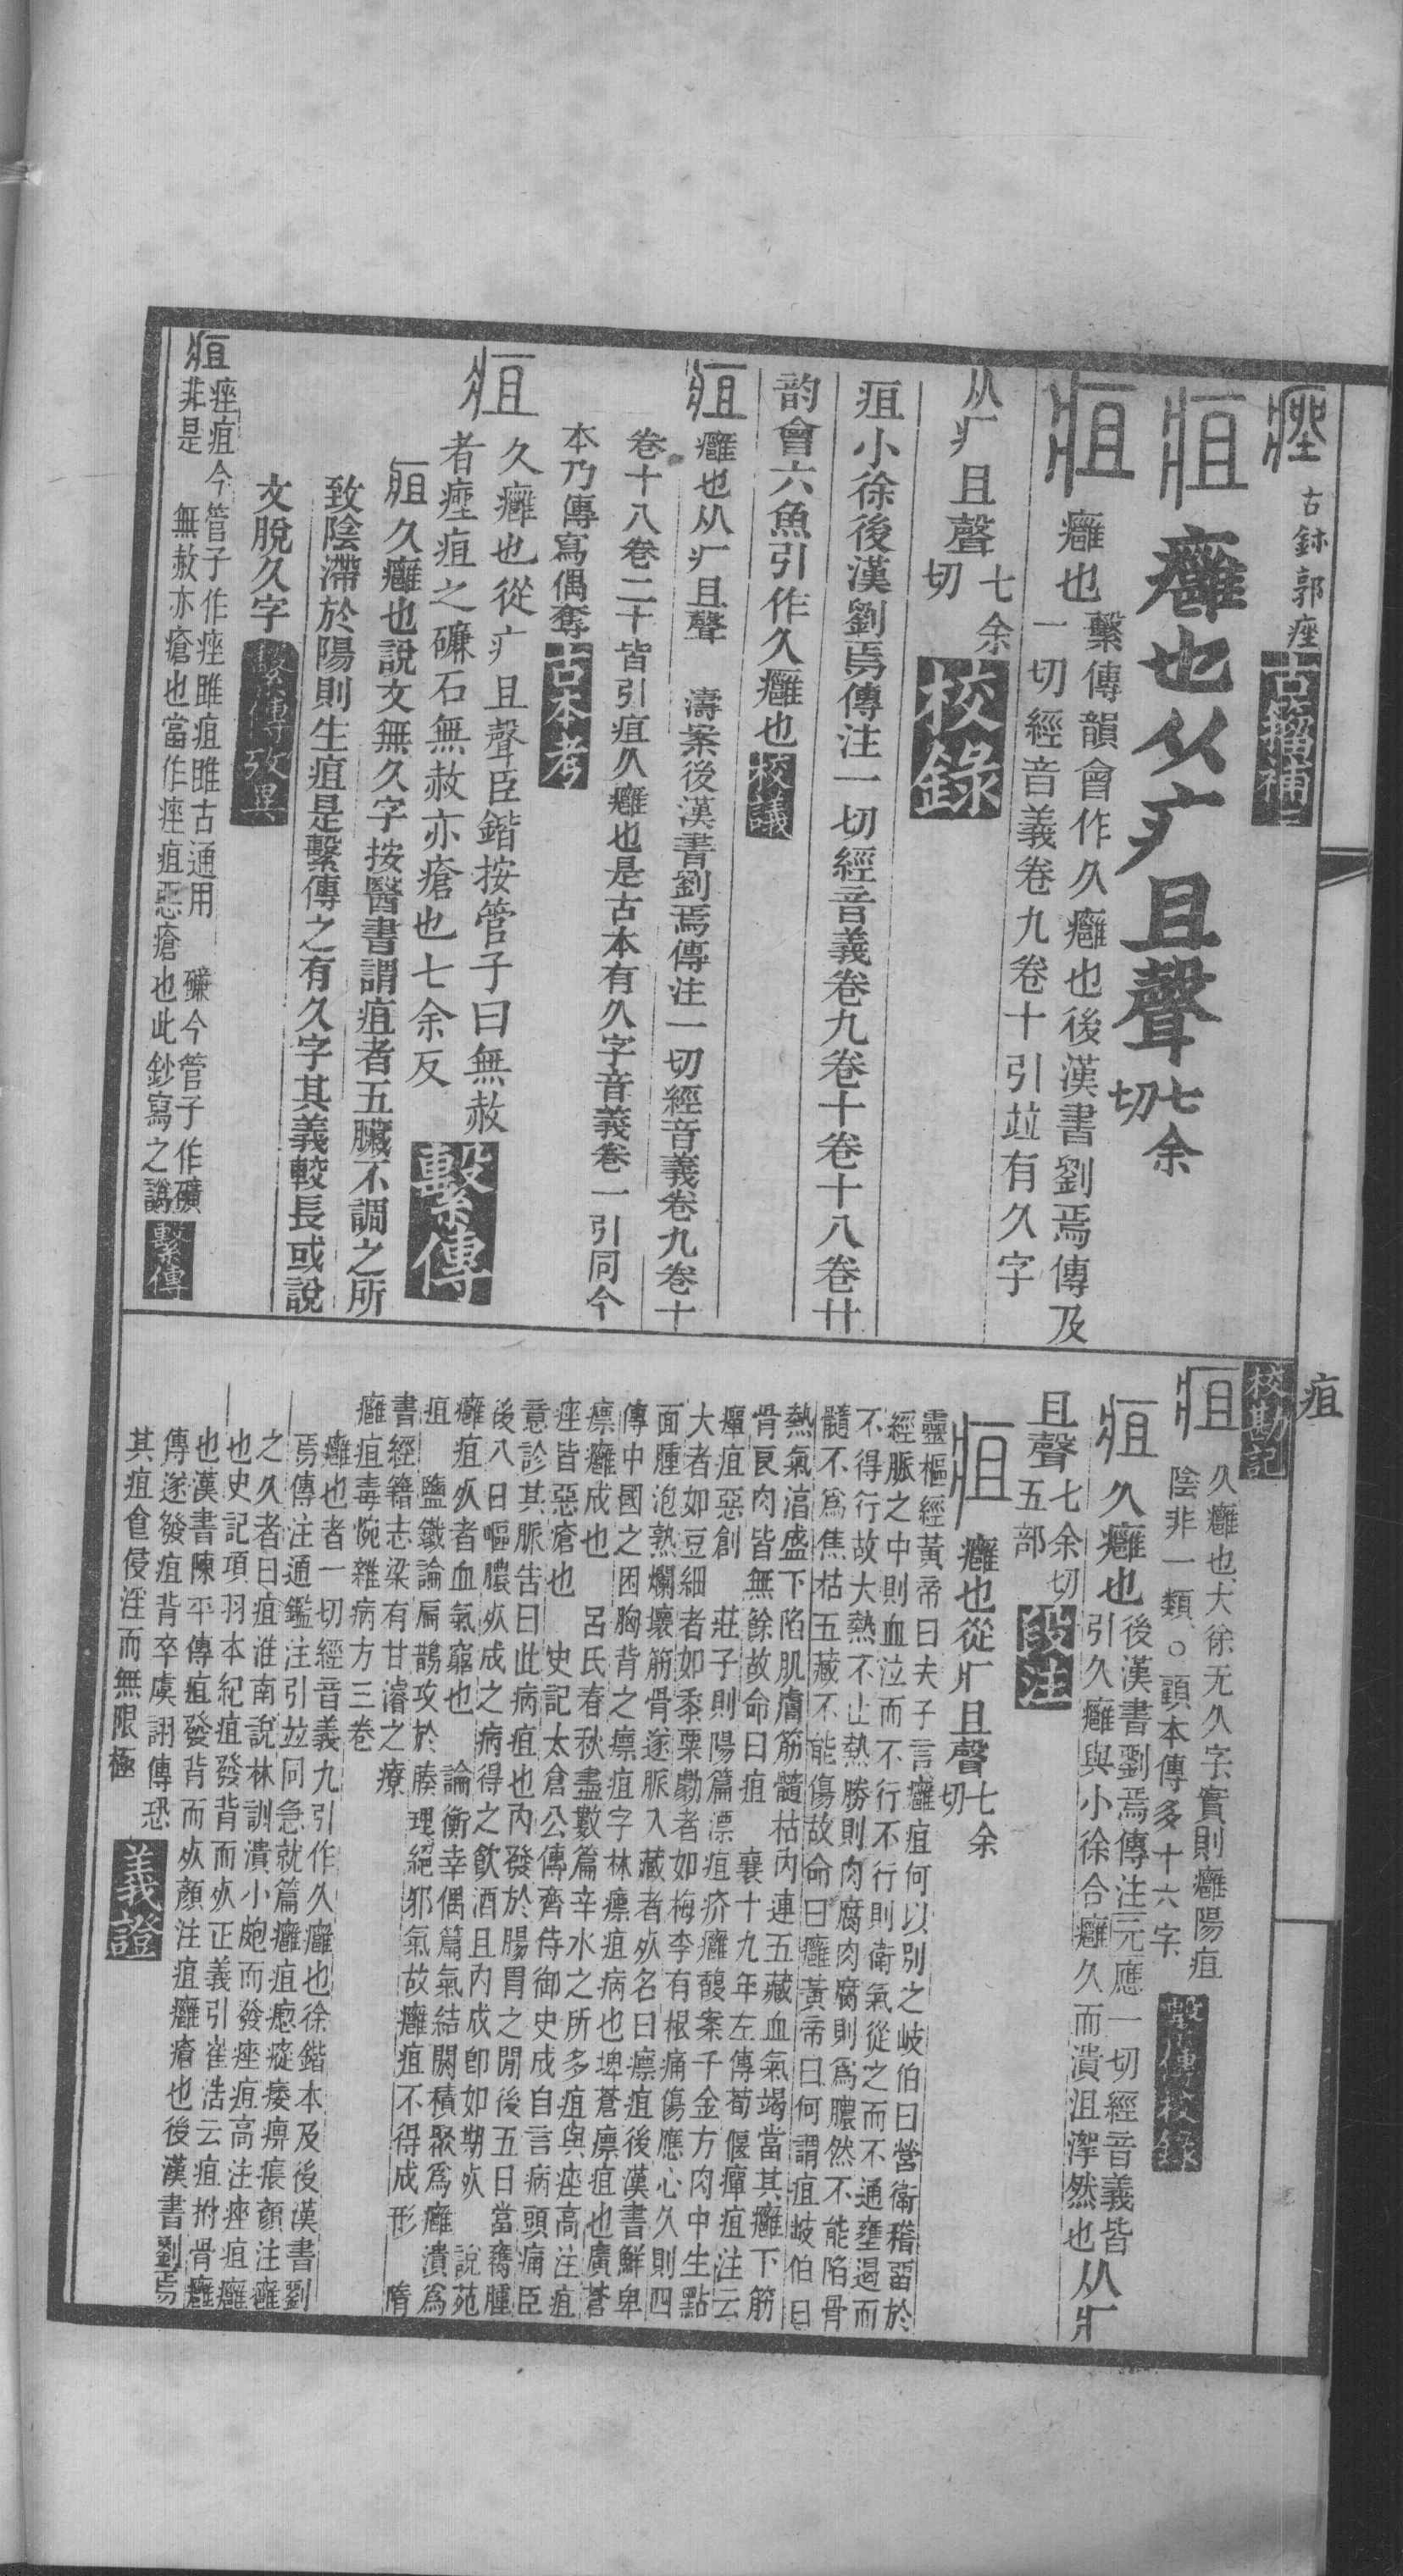 痤
古鉢郭痤
古籀補
疽
癰也从疒且聲七余切
疽
癰也
繫傳韻會作久癰也後漢書劉焉傳及
一切經音義卷九卷十引竝有久字
从疒且聲七余切
校錄
疽小徐後漢劉焉傳注一切經音義卷九卷十卷十八卷廿
韵會六魚引作久癰也
校議
疽
癰也从疒且聲　濤案後漢書劉焉傳注一切經音義卷九卷十
卷十八卷二十皆引疽久癰也是古本有久字音義卷一引同今
本乃傳寫偶奪
古本考
疽
久癰也從疒且聲臣鍇按管子曰無赦
者痤疽之礦石無赦亦瘡也七余反
繫傳
疽久癰也說文無久字按醫書謂疽者五臟不調之所
致陰滯於陽則生疽是繫傳之有久字其義較長或說
文脫久字
繫傳攷異
疽
痤疽今管子作痤雎疽雎古通用　礦今管子作礦
非是　無赦亦瘡也當作痤疽惡瘡也此鈔寫之譌
繫傳
校勘記
疽
疽
久癰也大徐无久字實則癰陽疽
陰非一類○顧本傳多十六字
繫傳校錄
疽
久癰也
後漢書劉焉傳注元應一切經音義皆
引久癰與小徐合癰久而潰沮潔然也
从疒
且聲
七余切
五部
段注
疽
癰也從疒且聲
七余切
靈樞經黃帝曰夫子言癰疽何以別之岐伯曰營衛稽畱於
經脈之中則血泣而不行不行則衛氣從之而不通壅遏而
不得行故大熱不止熱勝則肉腐肉腐則爲膿然不能陷骨
髓不爲焦枯五藏不能傷故命曰癰黃帝曰何謂疽岐伯曰
熱氣湻盛下陷肌膚筋髓枯內連五藏血氣竭當其癰下筋
骨良肉皆無餘故命曰疽　襄十九年左傳荀偃癉疽注云
癉疽惡創　莊子則陽篇漂疽疥癰馥案千金方肉中生點
大者如豆細者如黍粟劇者如梅李有根痛傷應心久則四
面腫泡熟爛壞筋骨遂脈入藏者㱙名曰瘭疽後漢書鮮卑
傳中國之困胸背之瘭疽字林瘭疽病也埤蒼瘭疽也廣蒼
瘭癰成也　呂氏春秋盡數篇辛水之所多疽與痤高注疽
痤皆惡瘡也　史記太倉公傳齊侍御史成自言病頭痛臣
意診其脈告曰此病疽也內發於腸胃之閒後五日當癰腫
後八日嘔膿㱙成之病得之飲酒且內成卽如期㱙　說苑
癰疽㱙者血氣窮也　論衡幸偶篇氣結閼積聚爲癰潰爲
疽　鹽鐵論扁鵲攻於腠理絕邪氣故癰疽不得成形　隋
書經籍志梁有甘濬之療
癰疽毒惋雜病方三卷
癰也者一切經音義九引作久癰也徐鍇本及後漢書劉
焉傳注通鑑注引竝同急就篇癰疽瘛瘲痿痹痕顏注癰
之久者曰疽淮南說林訓潰小皰而發痤疽高注痤疽癰
也史記項羽本紀疽發背而㱙正義引崔浩云疽附骨癰
也漢書陳平傳疽發背而㱙顏注疽癰瘡也後漢書劉焉
傳遂發疽背卒虞詡傳恐
其疽食侵淫而無限極
義證